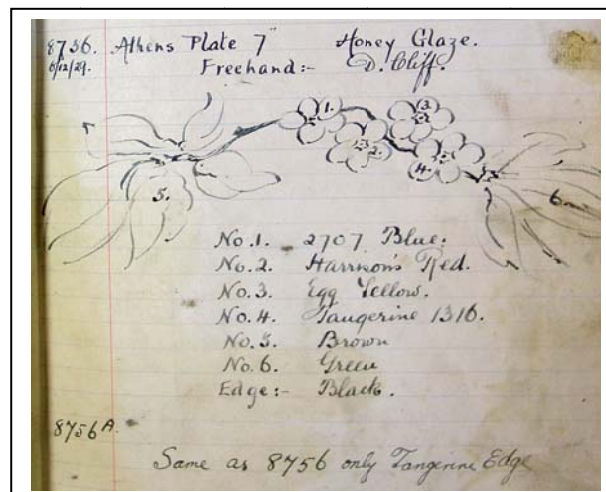 8756. Athens Plate 7" Honey Glaze.
6/12/29. Freehand:- D. Cliff.
1.
3.
2.
4.
5.
6.
No. 1. 2707 Blue.
No. 2. Harrison's Red.
No. 3. Egg Yellow.
No. 4. Tangerine 1316.
No. 5. Brown
No. 6. Green
Edge:- Black.
8756A.
Same as 8756 only Tangerine Edge